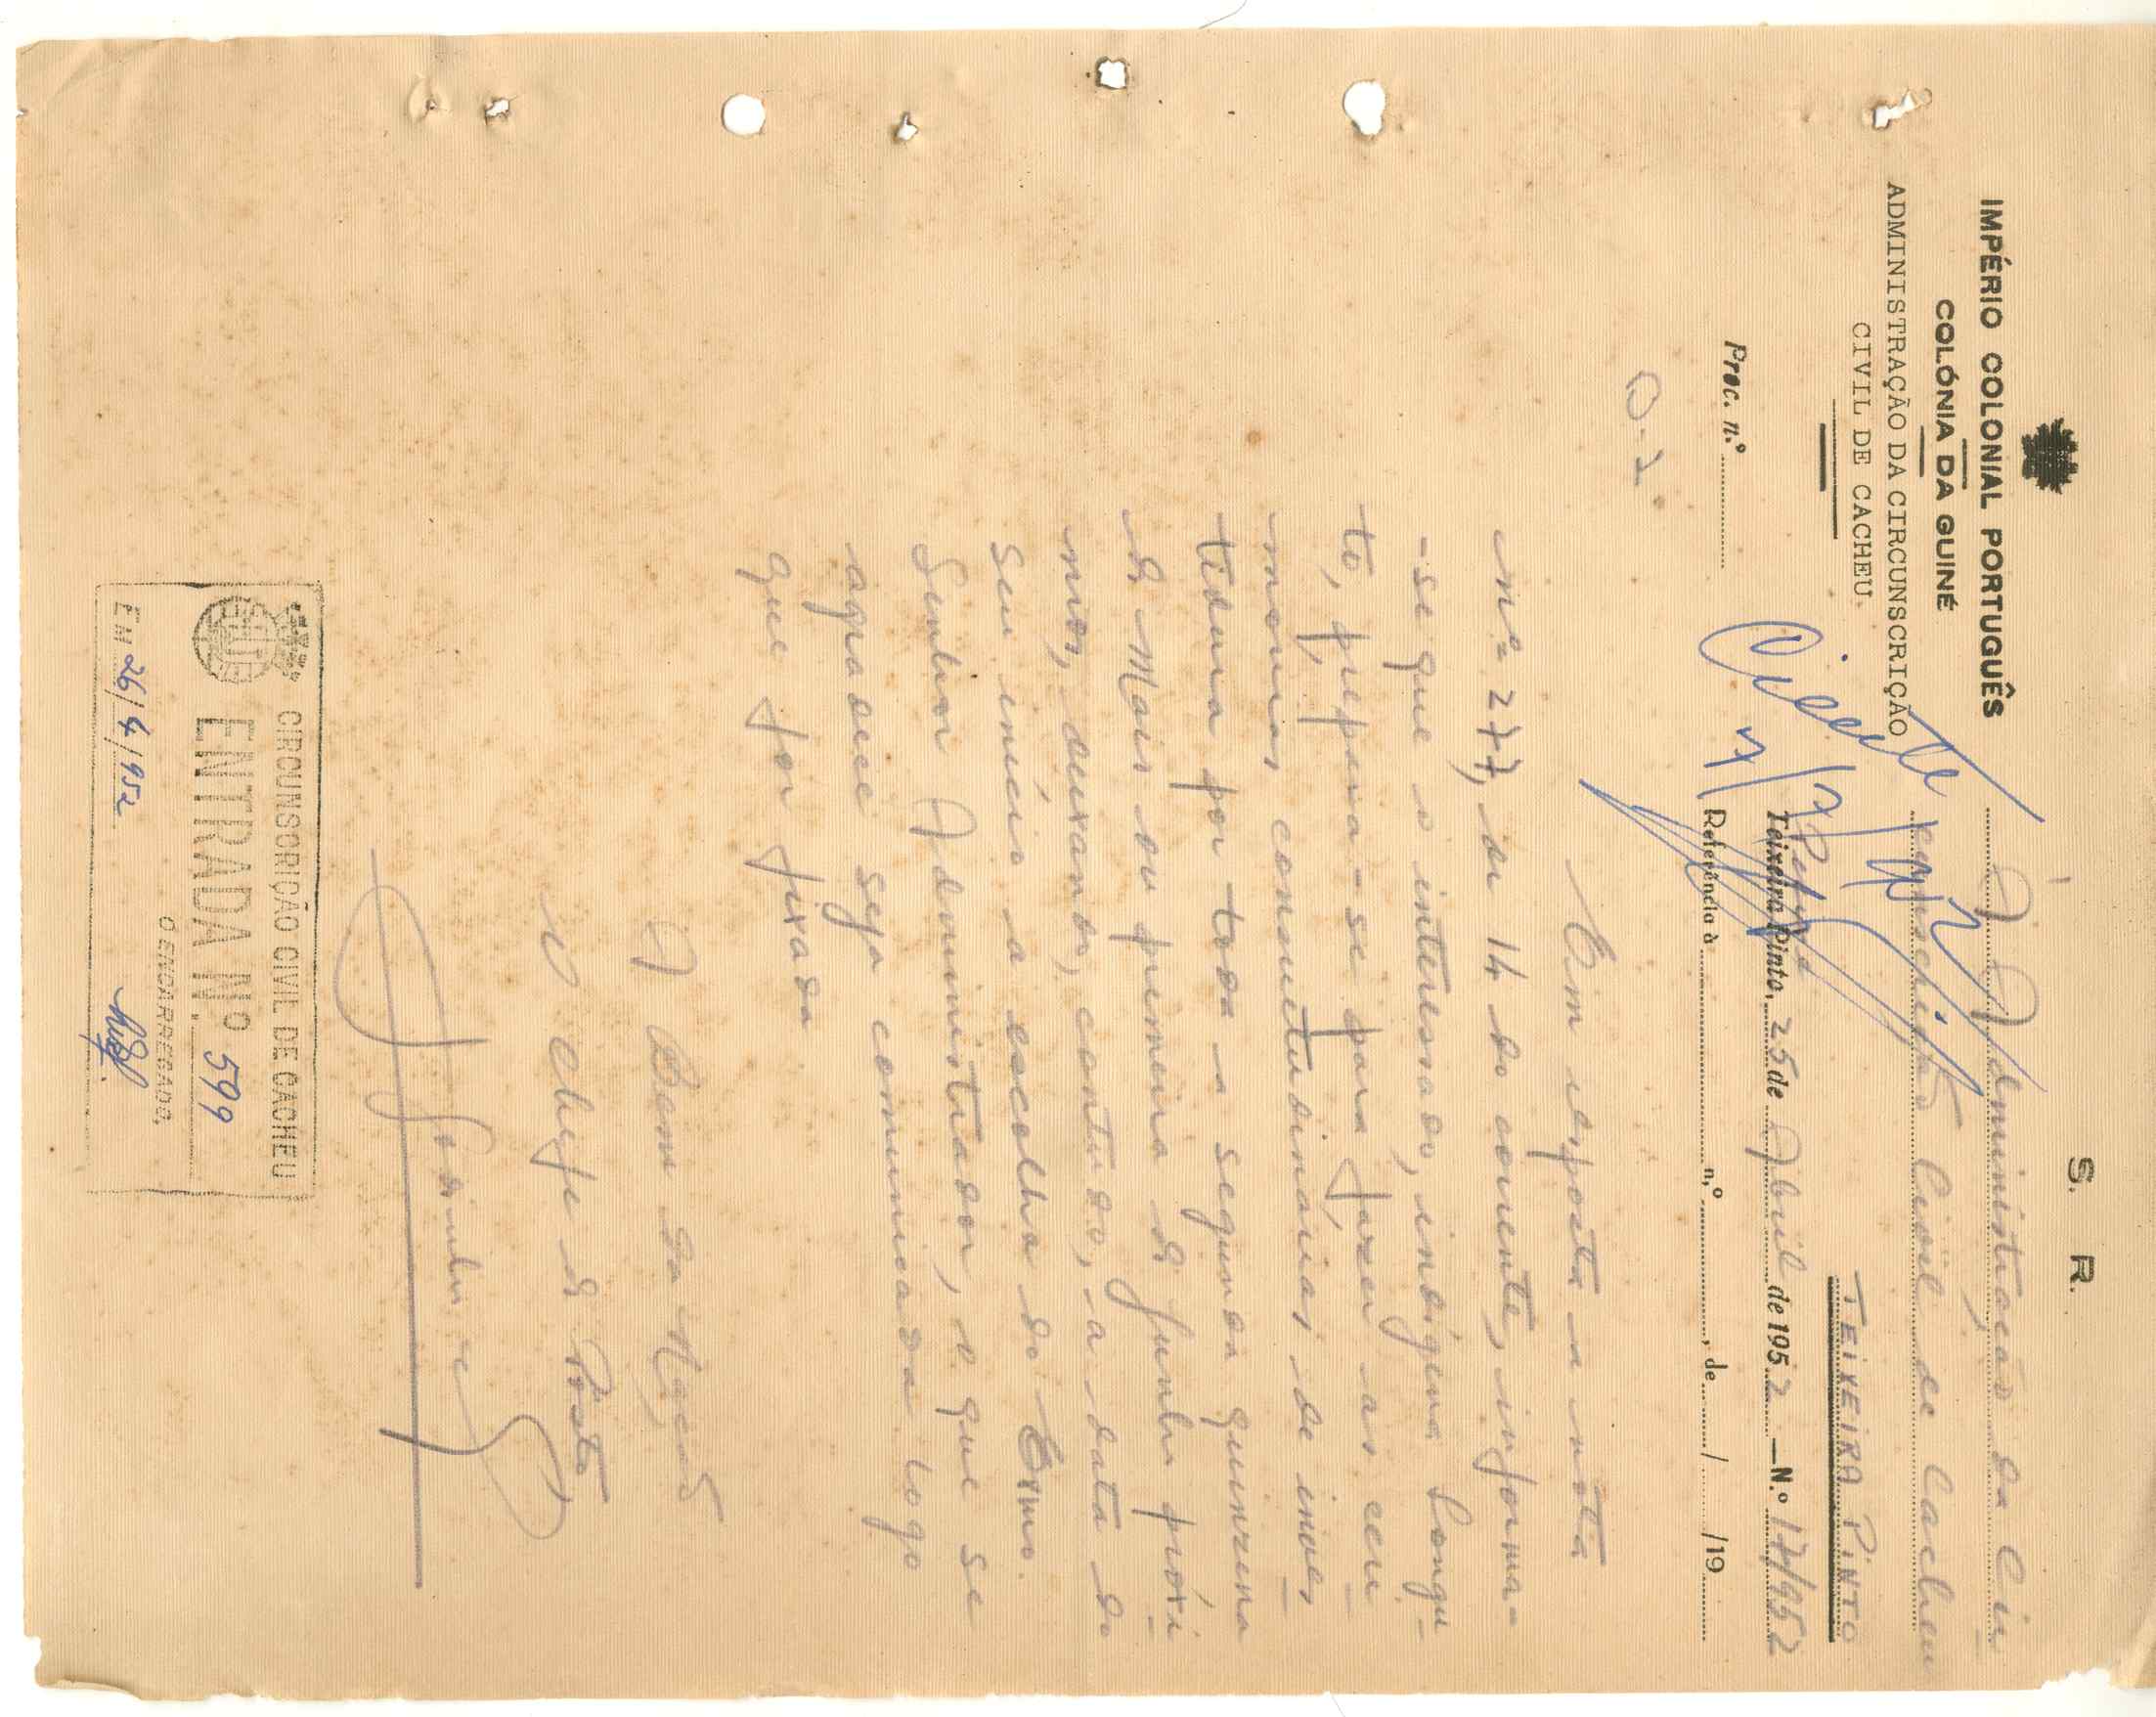 S. R.
IMPÉRIO COLONIAL PORTUGUÊS
COLÓNIA DA GUINÉ
ADMINISTRAÇÃO DA CIRCUNSCRIÇÃO
CIVIL DE CACHEU
À Administração da Cir
cunscrição Civil de Cacheu
TEIXEIRA PINTO
Teixeira Pinto, 25 de Abril de 1952 — N.º 17/952
Proc. n.º
Referência à n.º , de / /19
Em resposta a nota
nº 277, de 14 do corrente, informa-
-se que o interessado, indígena
to, prepara-se para fazer as ceri
monias consuetudinárias de inves
tidura por toda a segunda quinzena
de Maio ou primeira de Junho próxi
mos, deixando, contudo, a data do
seu início a escolha do Exmo.
Senhor Administrador, o que se
agradece seja comunicada logo
que for fixada
A Bem da Nação
O Chefe de Pôsto
CIRCUNSCRIÇÃO CIVIL DE CACHEU
ENTRADA Nº 599
O ENCARREGADO,
EM 26/4/952